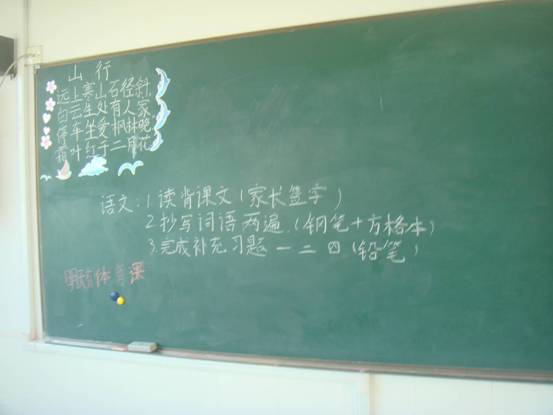 山行
远上寒山石径斜,
白云生处有人家
停车坐爱枫林晚,
霜叶红于二月花
语文:1 读背课文(家长签字)
2.抄写词语两遍.(钢笔+方格本)
3.完成补充习题一二四(铅笔)
明天有体育课